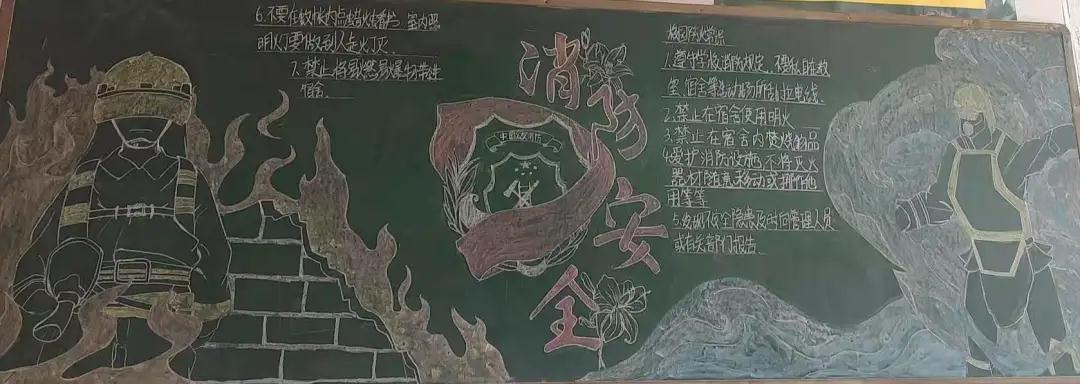 消防安全
校园防火常识
1.遵守学校消防规定，不要私自在教
室、宿舍等活动场所乱拉电线
2.禁止在宿舍使用明火
3.禁止在宿舍内焚烧物品
4.爱护消防设施，不将灭火
器材随意移动或挪作他
用等等
5.发现不安全隐患及时向管理人员
或有关部门报告
6.不要在蚊帐内点蜡烛看书 室内照
明灯要做到人走火灭.
7.禁止将易燃易爆物带进
宿舍.